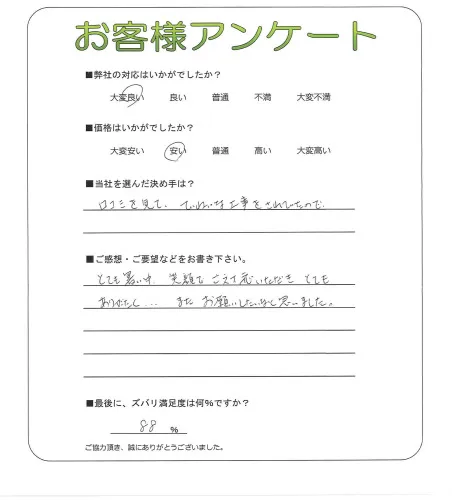 お客様アンケート
■弊社の対応はいかがでしたか？
大変良い 良い 普通 不満 大変不満
■価格はいかがでしたか？
大変安い 安い 普通 高い 大変高い
■当社を選んだ決め手は？
口コミを見て、ていねいな工事をされてたので。
■ご感想・ご要望などをお書き下さい。
とても暑い中、笑顔で 応いただき とても
ありがたく... また お願いしたいなと思いました。
■最後に、ズバリ満足度は何%ですか？
88 %
ご協力頂き、誠にありがとうございました。